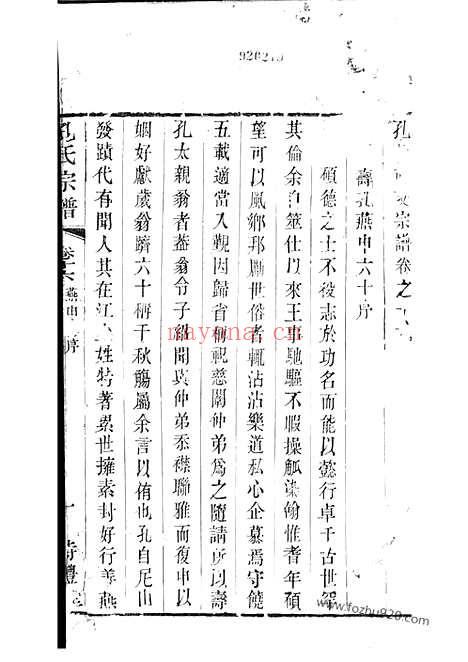 926219
孔氏宗譜卷之六
壽孔燕申六十序
碩德之士不役志於功名而能以懿行卓千古世罕
其倫余自筮仕以來王事馳驅不暇操觚染翰惟耆年碩
望可以風鄉邦勵世俗者輒沾沾樂道私心企慕焉守饒
五載適當入觀因歸省制祝慈闈仲弟為之隨請所以壽
孔太親翁者蓋翁令子純聞與仲弟忝襟聯雅而復申以
姻好獻歲翁躋六十稱千秋觴屬余言以侑也孔自尼山
發蹟代有聞人其在江 姓特著累世擁素封好行善燕
孔氏宗譜
卷六 燕申 序
十
詩禮
mayona.com
www.fozhu920.com